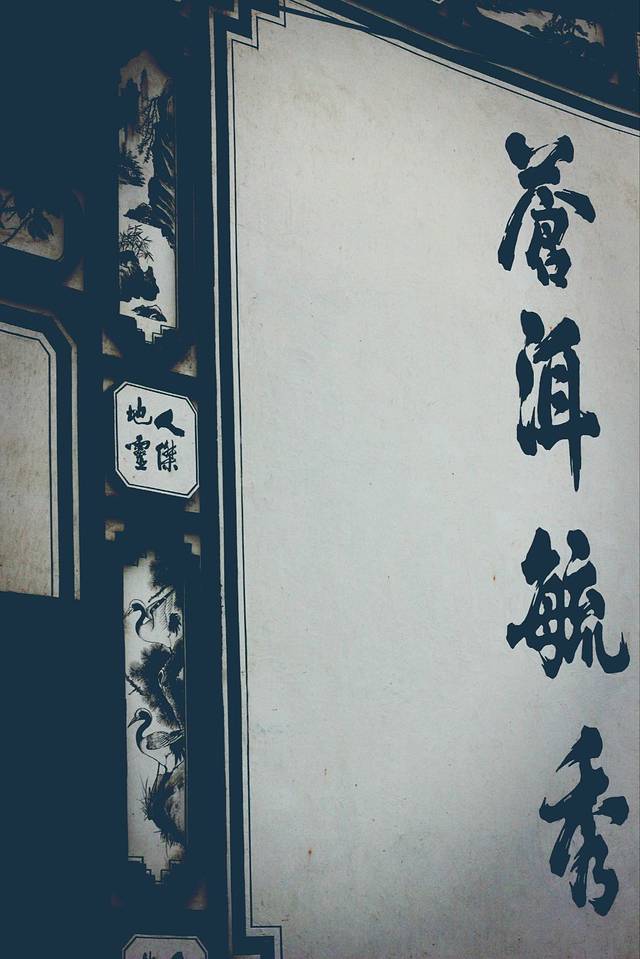 蒼洱毓秀
人傑
地靈